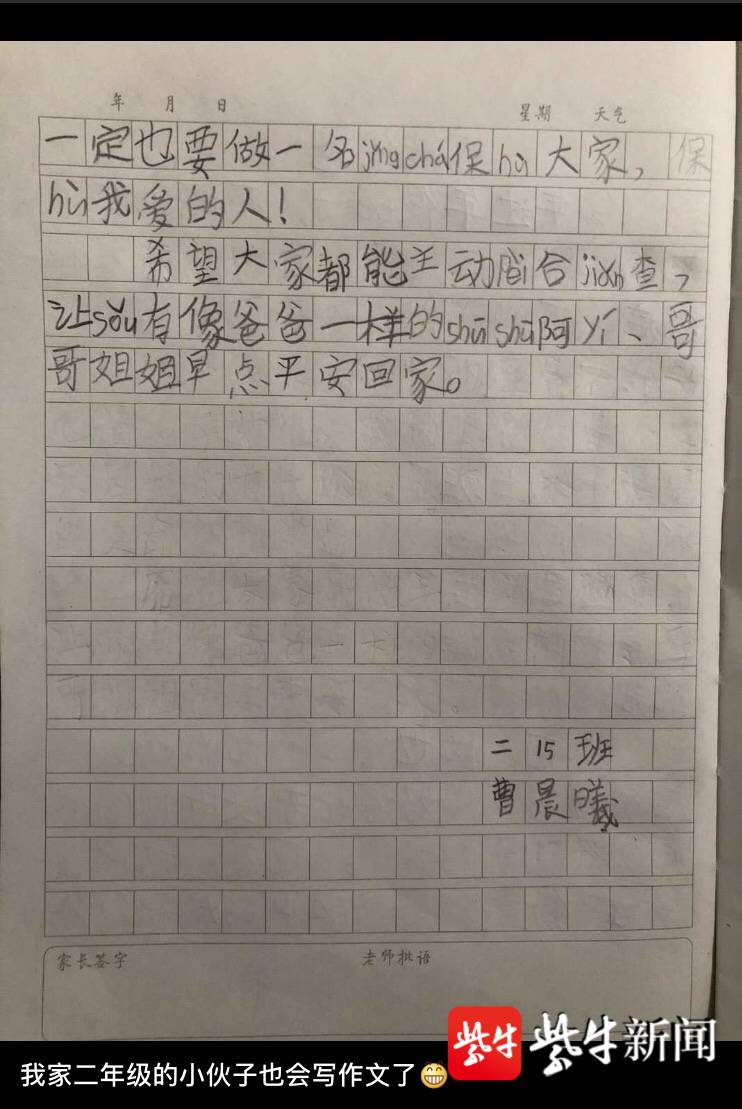 年 月 日 星期 天气
一定也要做一名jǐngchá保hù大家，保
hù我爱的人！
希望大家都能主动配合jiǎn查，
让sǒu有像爸爸一样的shū shū阿yí、哥
哥姐姐早点平安回家。
二 15 班
曹晨曦
家长签字 老师批语
紫牛 紫牛新闻
我家二年级的小伙子也会写作文了